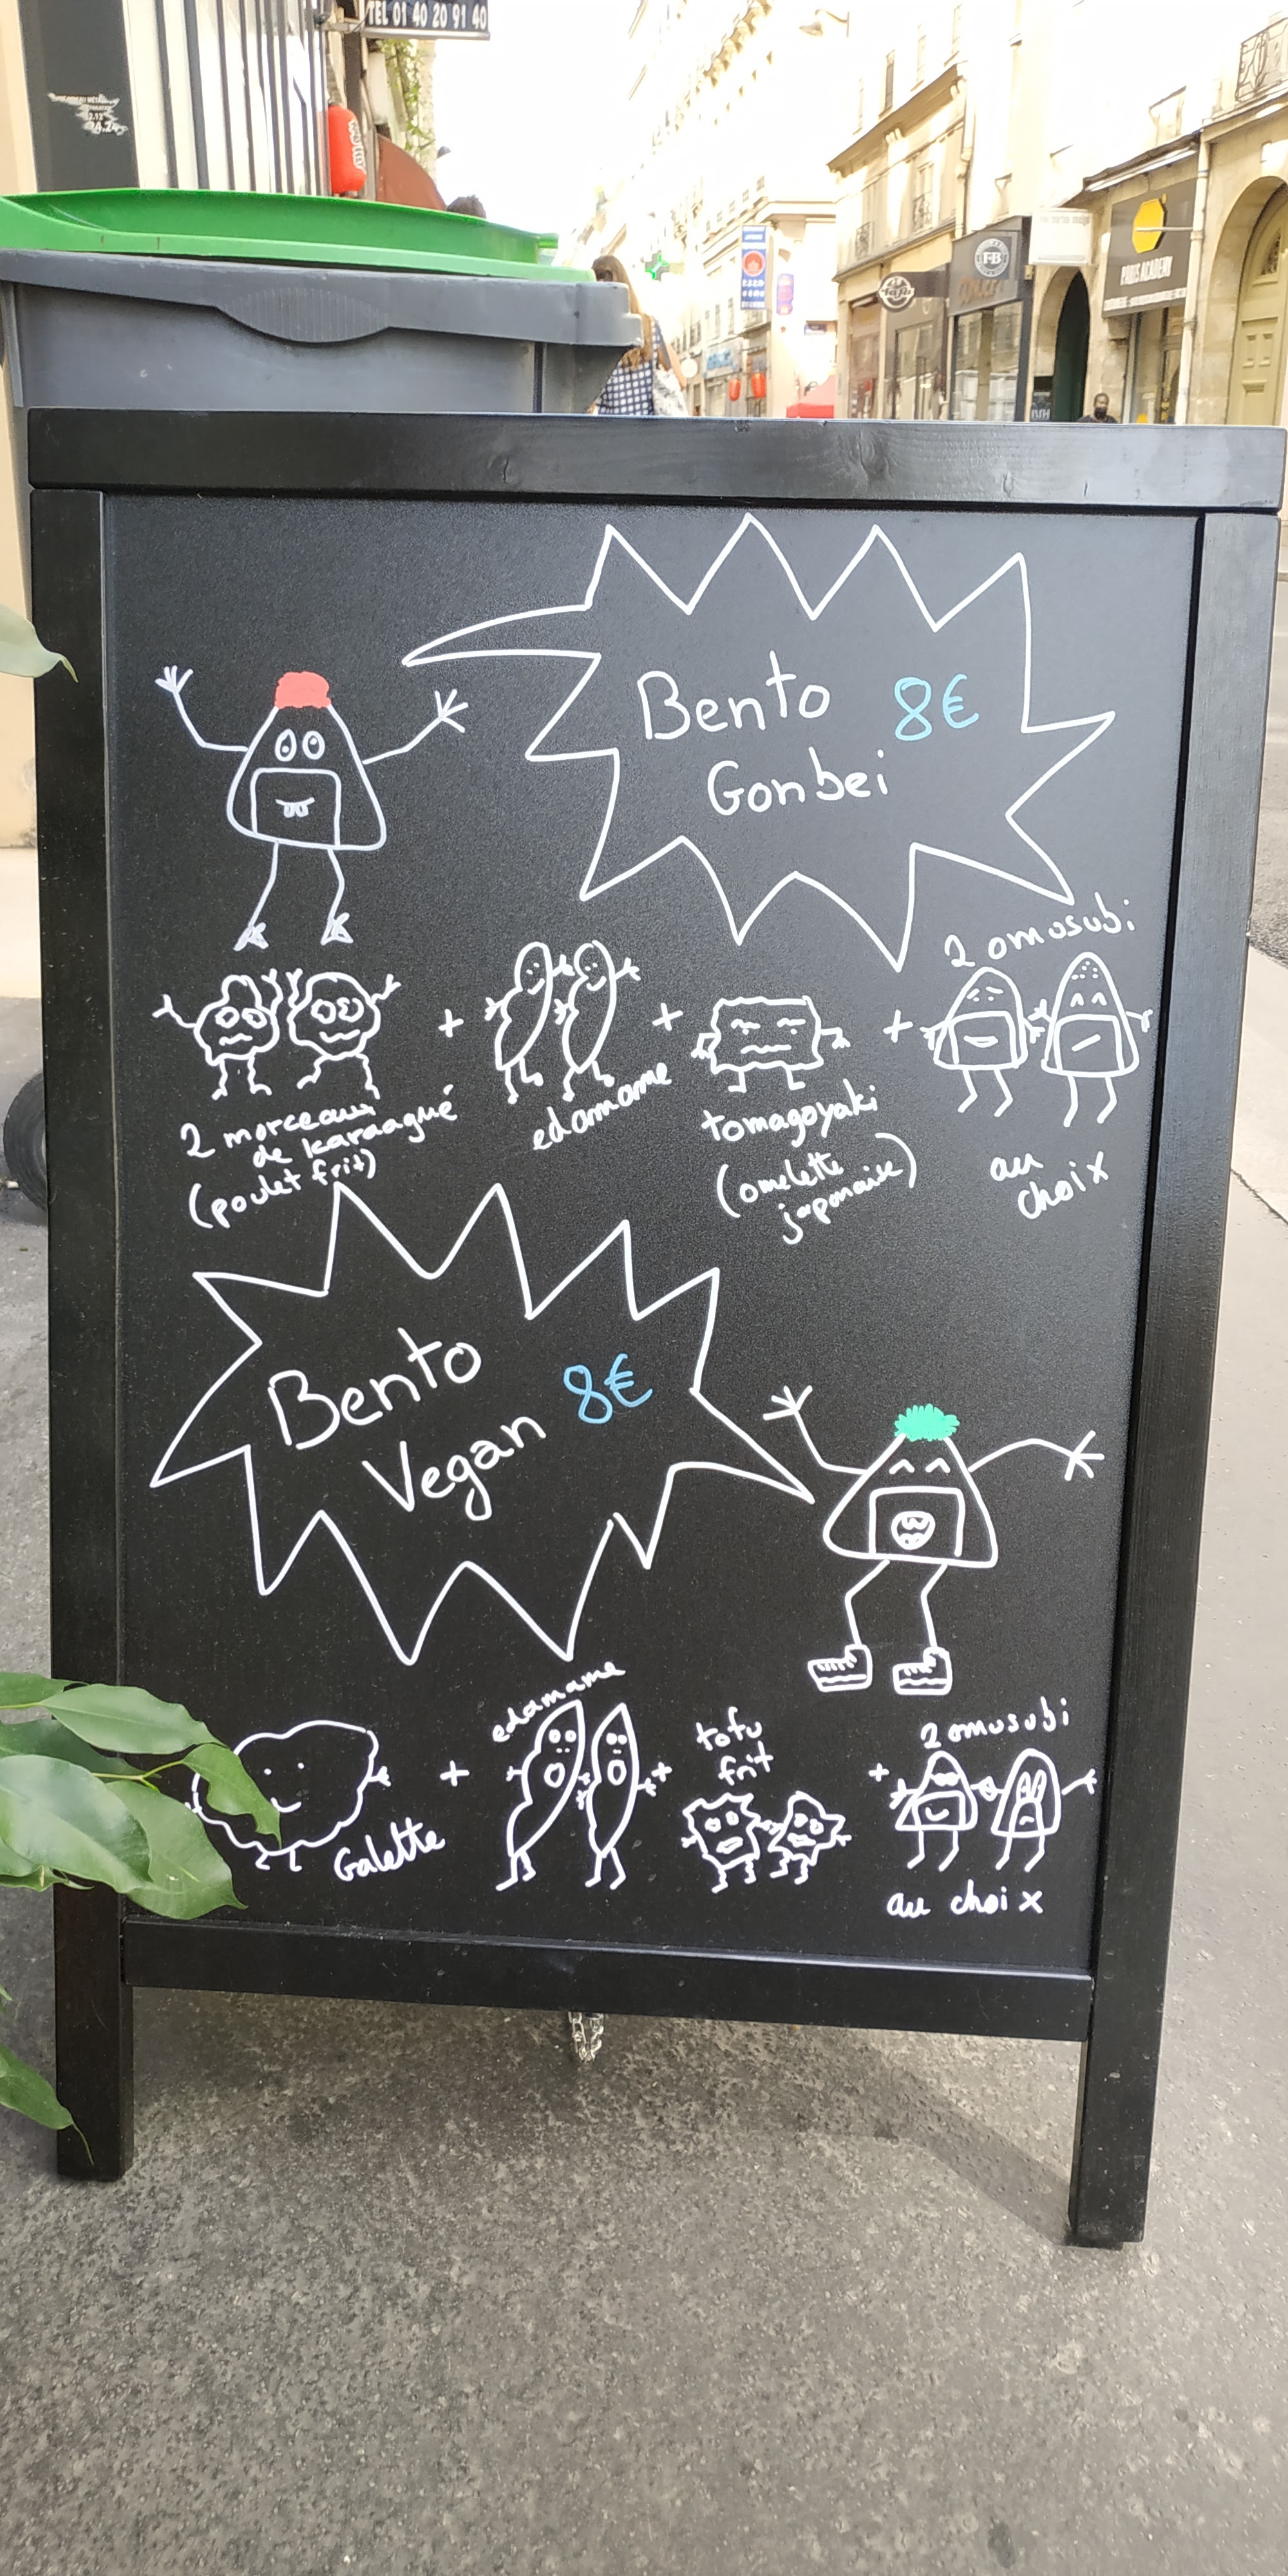 TEL 01 40 20 91 40
F-B
PARIS ACADEMY
Bento 8€
Gonbei
2 omusubi
+
+
+
2 morceaux
de karaagué
(poulet frit)
edamame
tomagoyaki
(omelette
japonaise)
au
choix
Bento 8€
Vegan
edamame
tofu
frit
2 omusubi
+
+
+
Galette
au choix